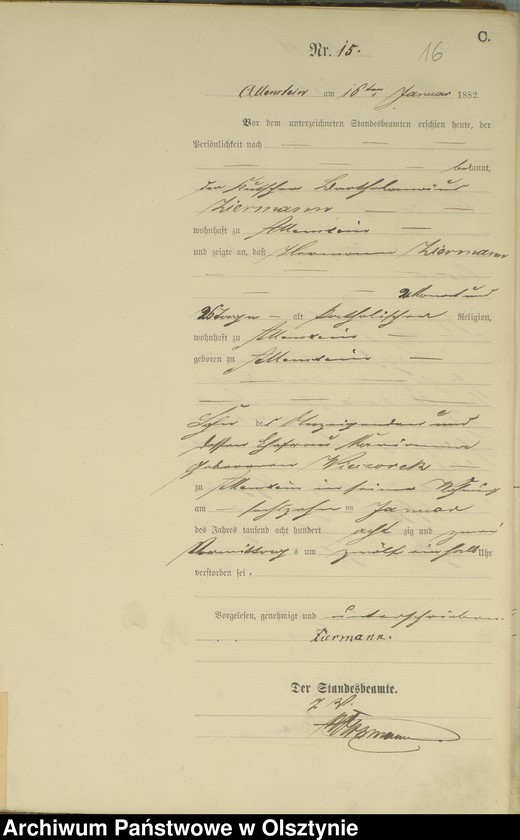 C.
Nr. 15.
16
Allenstein am 16ten Januar 1882.
Vor dem unterzeichneten Standesbeamten erschien heute, der
Persönlichkeit nach
bekannt,
der Kutscher Bartholomäus
Ziermann
wohnhaft zu Allenstein
und zeigte an, daß Hermann Ziermann
2 Monat und
alt katholischer Religion,
wohnhaft zu Allenstein
geboren zu Allenstein
Sohn des Anzeigenden und
dessen Ehefrau Marianna
geborenen Wieczorek
zu Allenstein in seiner Wohnung
am sechszehn ten Januar
des Jahres tausend acht hundert acht zig und zwei
Vormittags um zwölf ein halb Uhr
verstorben sei.
Vorgelesen, genehmigt und unterschrieben.
Der Standesbeamte.